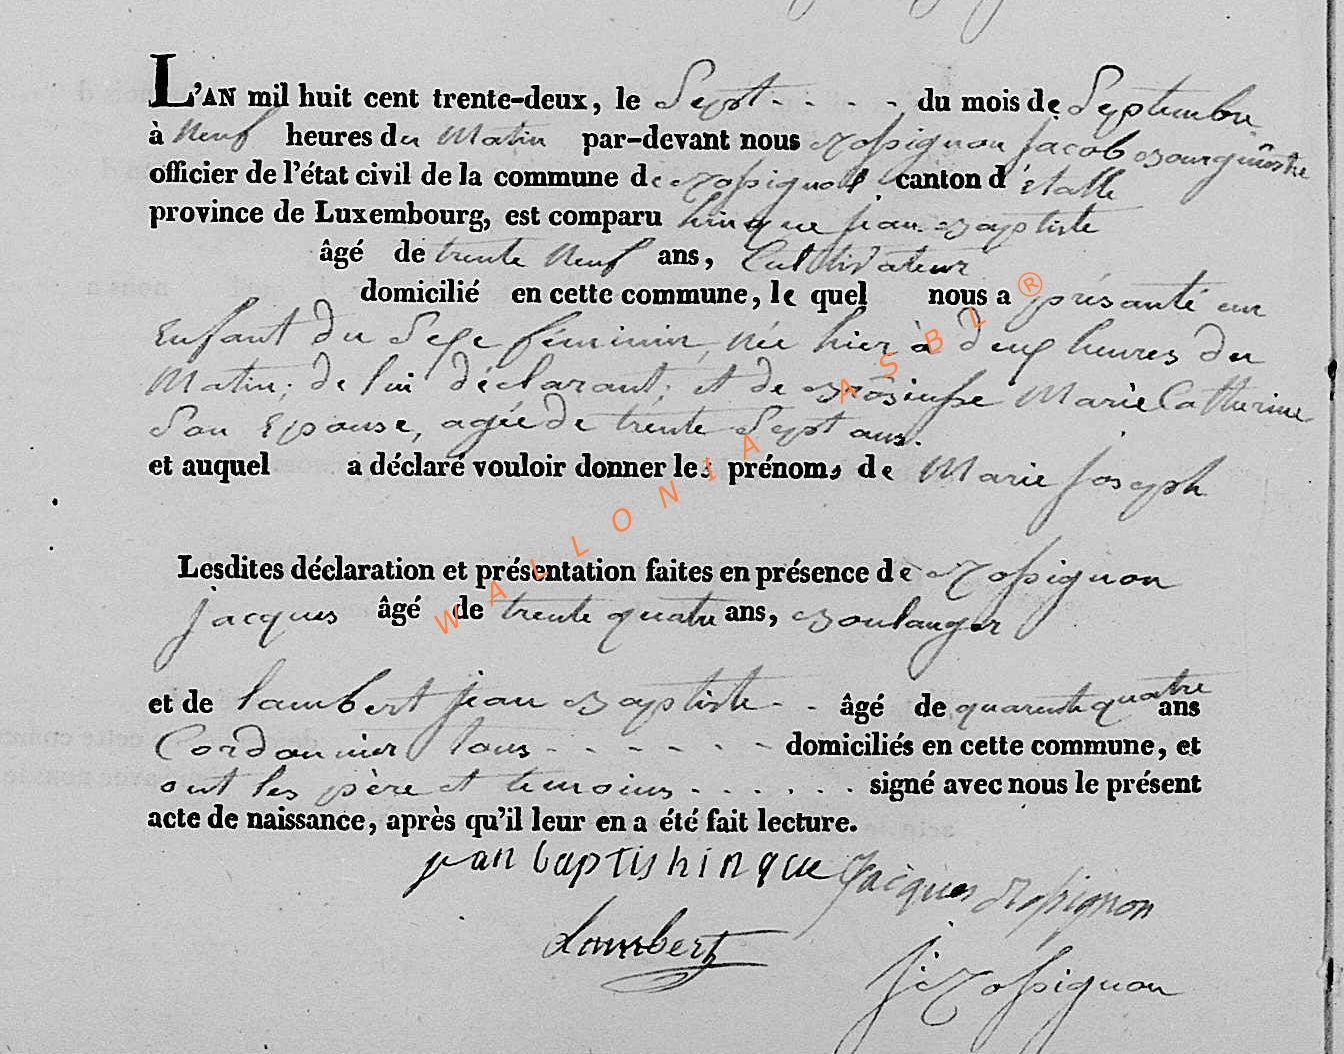 L'AN mil huit cent trente-deux, le Sept - - - - du mois de Septembre
à Neuf heures du Matin par-devant nous Rossignon jacob Bourguiestre
officier de l'état civil de la commune de Rossignol canton d'étalle
province de Luxembourg, est comparu hinque jean Baptiste
âgé de trente Neuf ans, Cultivateur
domicilié en cette commune, le quel nous a présanté un
Enfant du Sexe féminin, née hier à deux heures du
Matin; de lui déclarant; et de Marie Catherine
Son Epouse, agée de trente Sept ans.
et auquel a déclaré vouloir donner les prénoms de Marie joseph
Lesdites déclaration et présentation faites en présence de Rossignon
jacques âgé de trente quatre ans, Boulanger
et de lambert jean Baptiste - - âgé de quarente quatre ans
Cordonnier tous - - - - - - domiciliés en cette commune, et
ont les père et temoins - - - - - - signé avec nous le présent
acte de naissance, après qu'il leur en a été fait lecture.
jean baptis hinque Jacques Rossignon
Lambert
j: Rossignon
WALLONIA ASBL ®